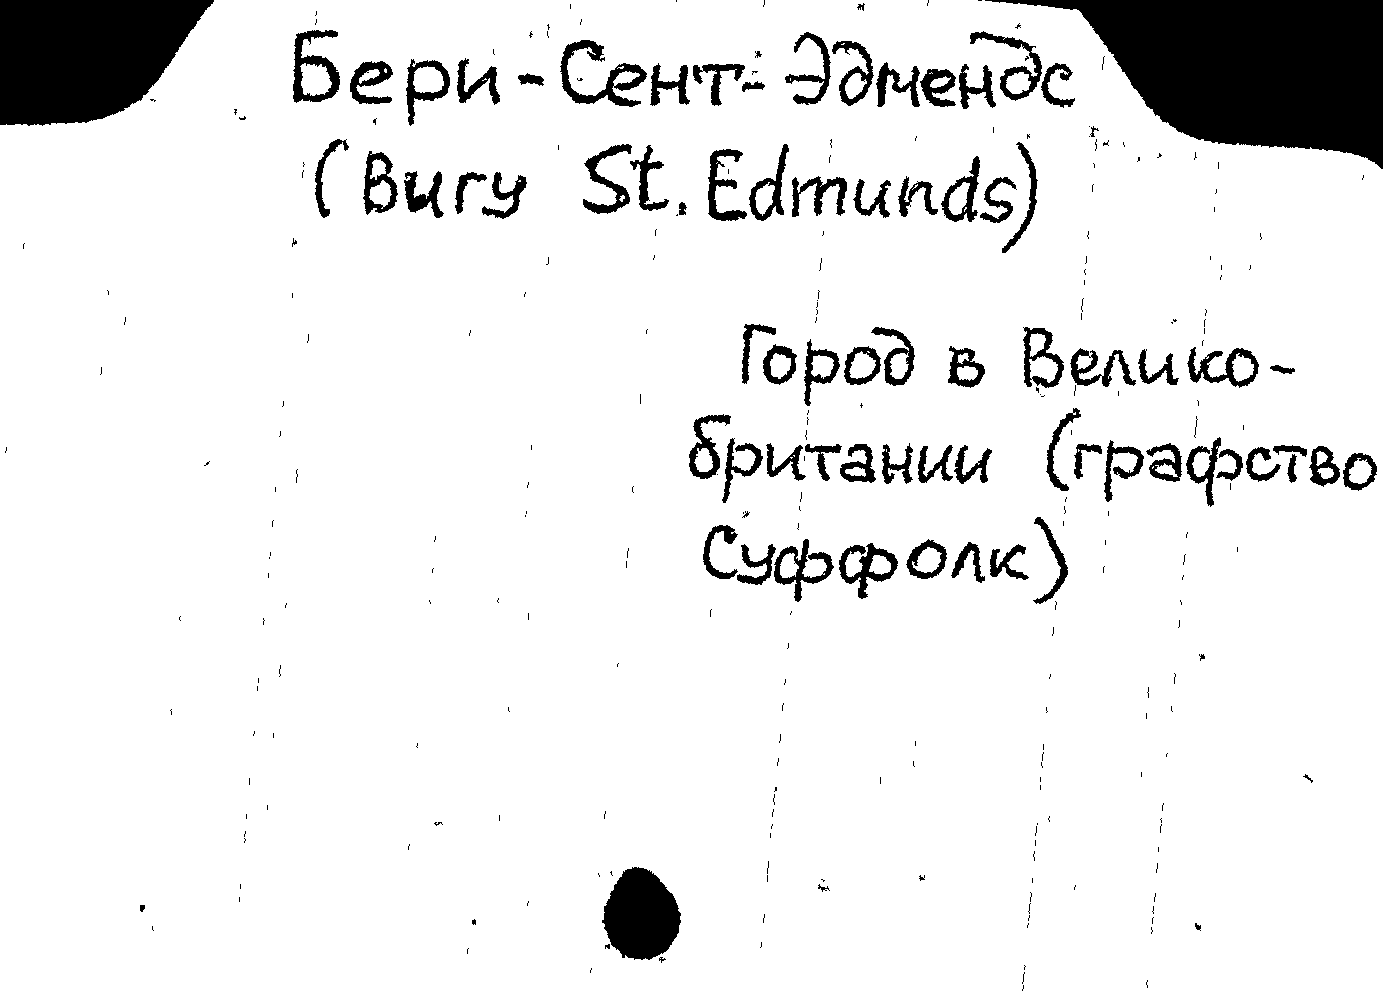 Бери-Сент-Эдмендс
(Bury St. Edmunds)
Город в Велико-
британии (графство
Суффолк)